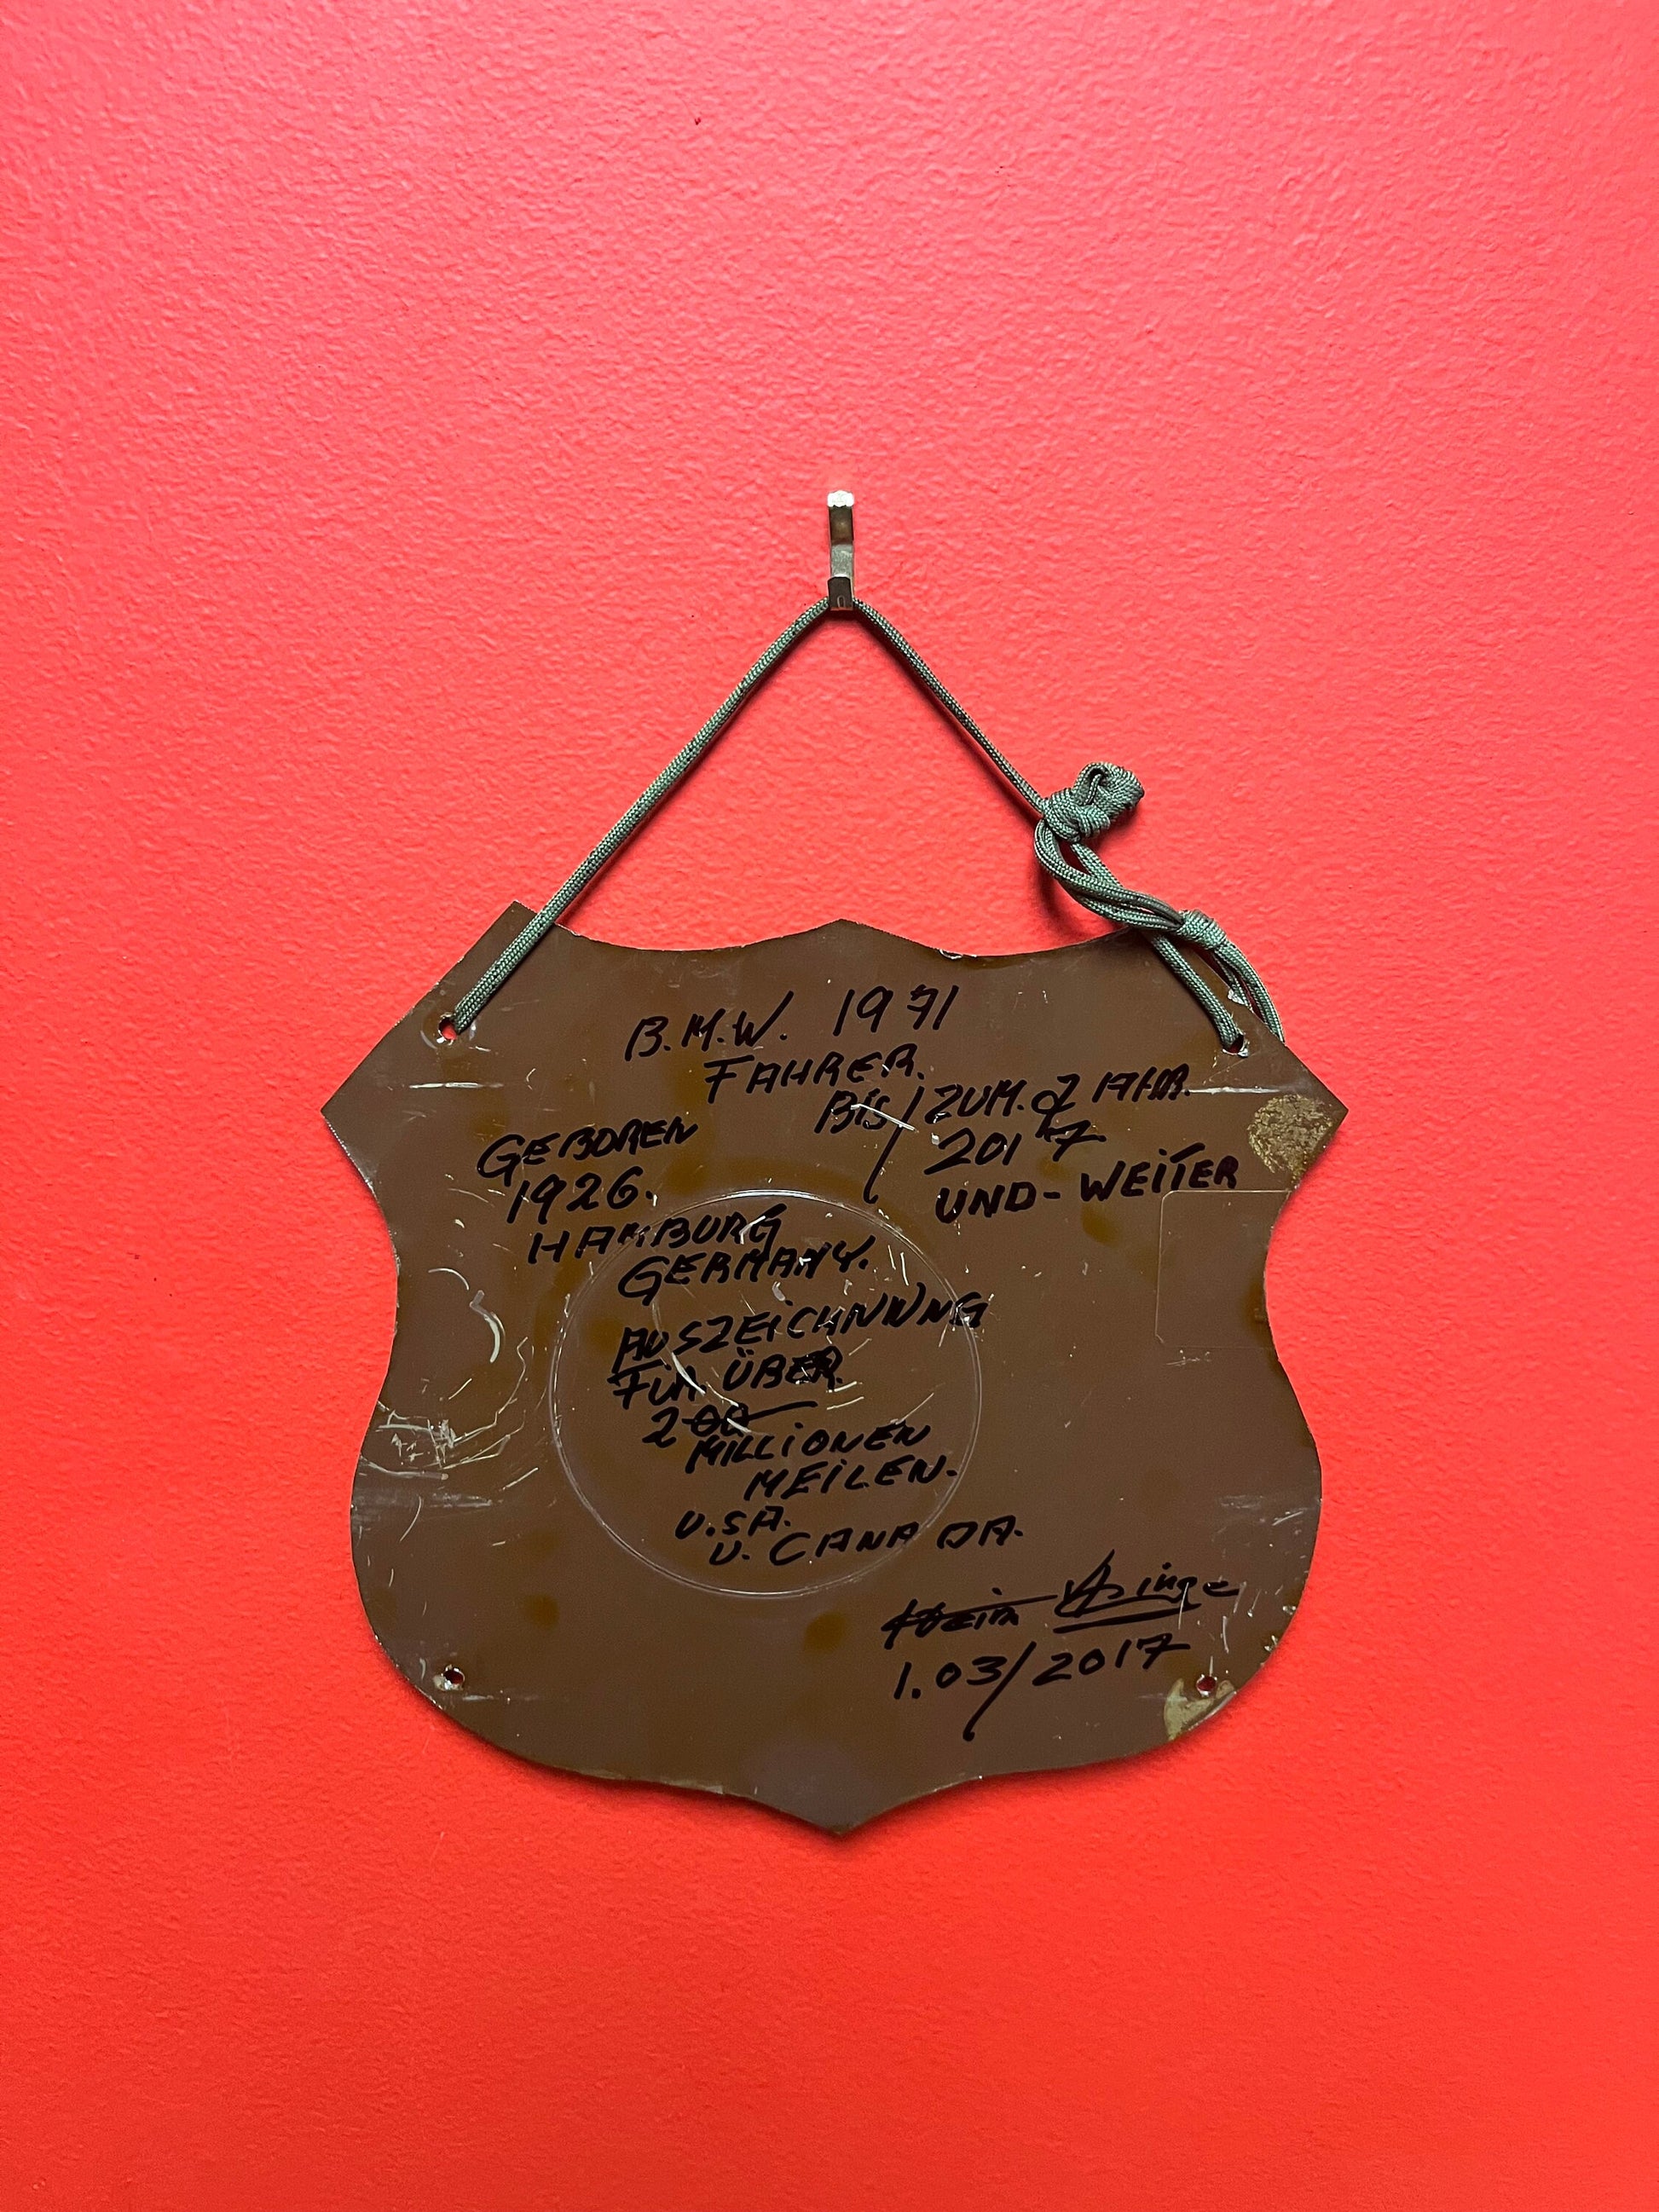 B.M.W. 1971
FAHRER.
BIS / ZUM. JAHR.
2017
UND-WEITER
GEBOREN
1926.
HAMBURG
GERMANY.
AUSZEICHNUNG
FÜR ÜBER
2
MILLIONEN
MEILEN.
U.SA.
U. CANADA.
1.03/2017